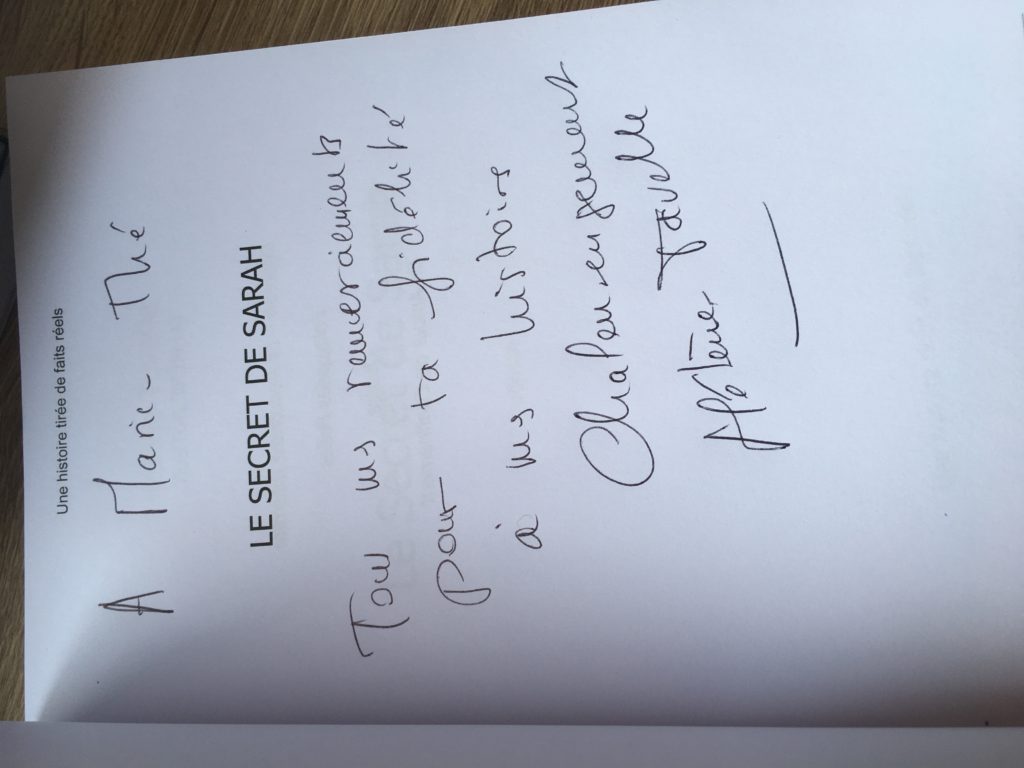 Une histoire tirée de faits réels
A Marie-Thé
LE SECRET DE SARAH
Tous mes remerciements
pour ta fidélité
à mes histoires